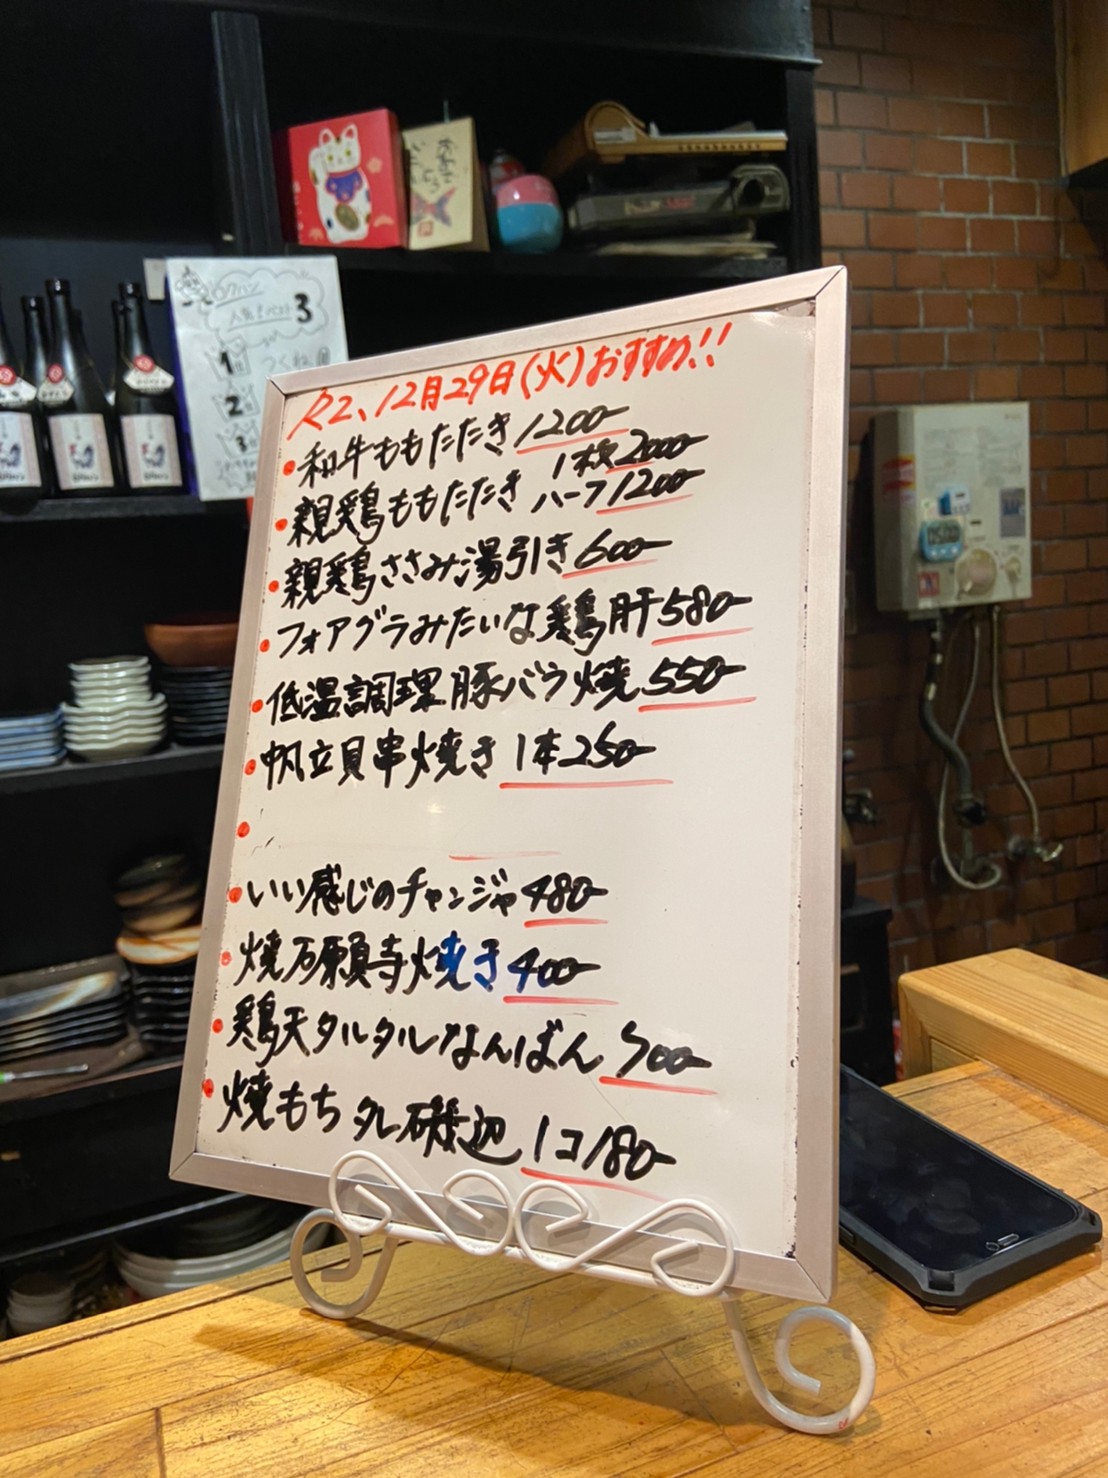 ロクハン
人気ベスト3
1
つくね
2
3
R2、12月29日(火)おすすめ!!
和牛ももたたき 1200-
親鶏ももたたき 1枚2000-
ハーフ1200-
親鶏ささみ湯引き 600-
フォアグラみたいな鶏肝 580-
低温調理豚バラ焼 550-
帆立貝串焼き 1本250-
いい感じのチャンジャ 480-
焼石原願寺焼き 400-
鶏天タルタルなんばん 500-
焼もち タレ 磯辺 1コ180-